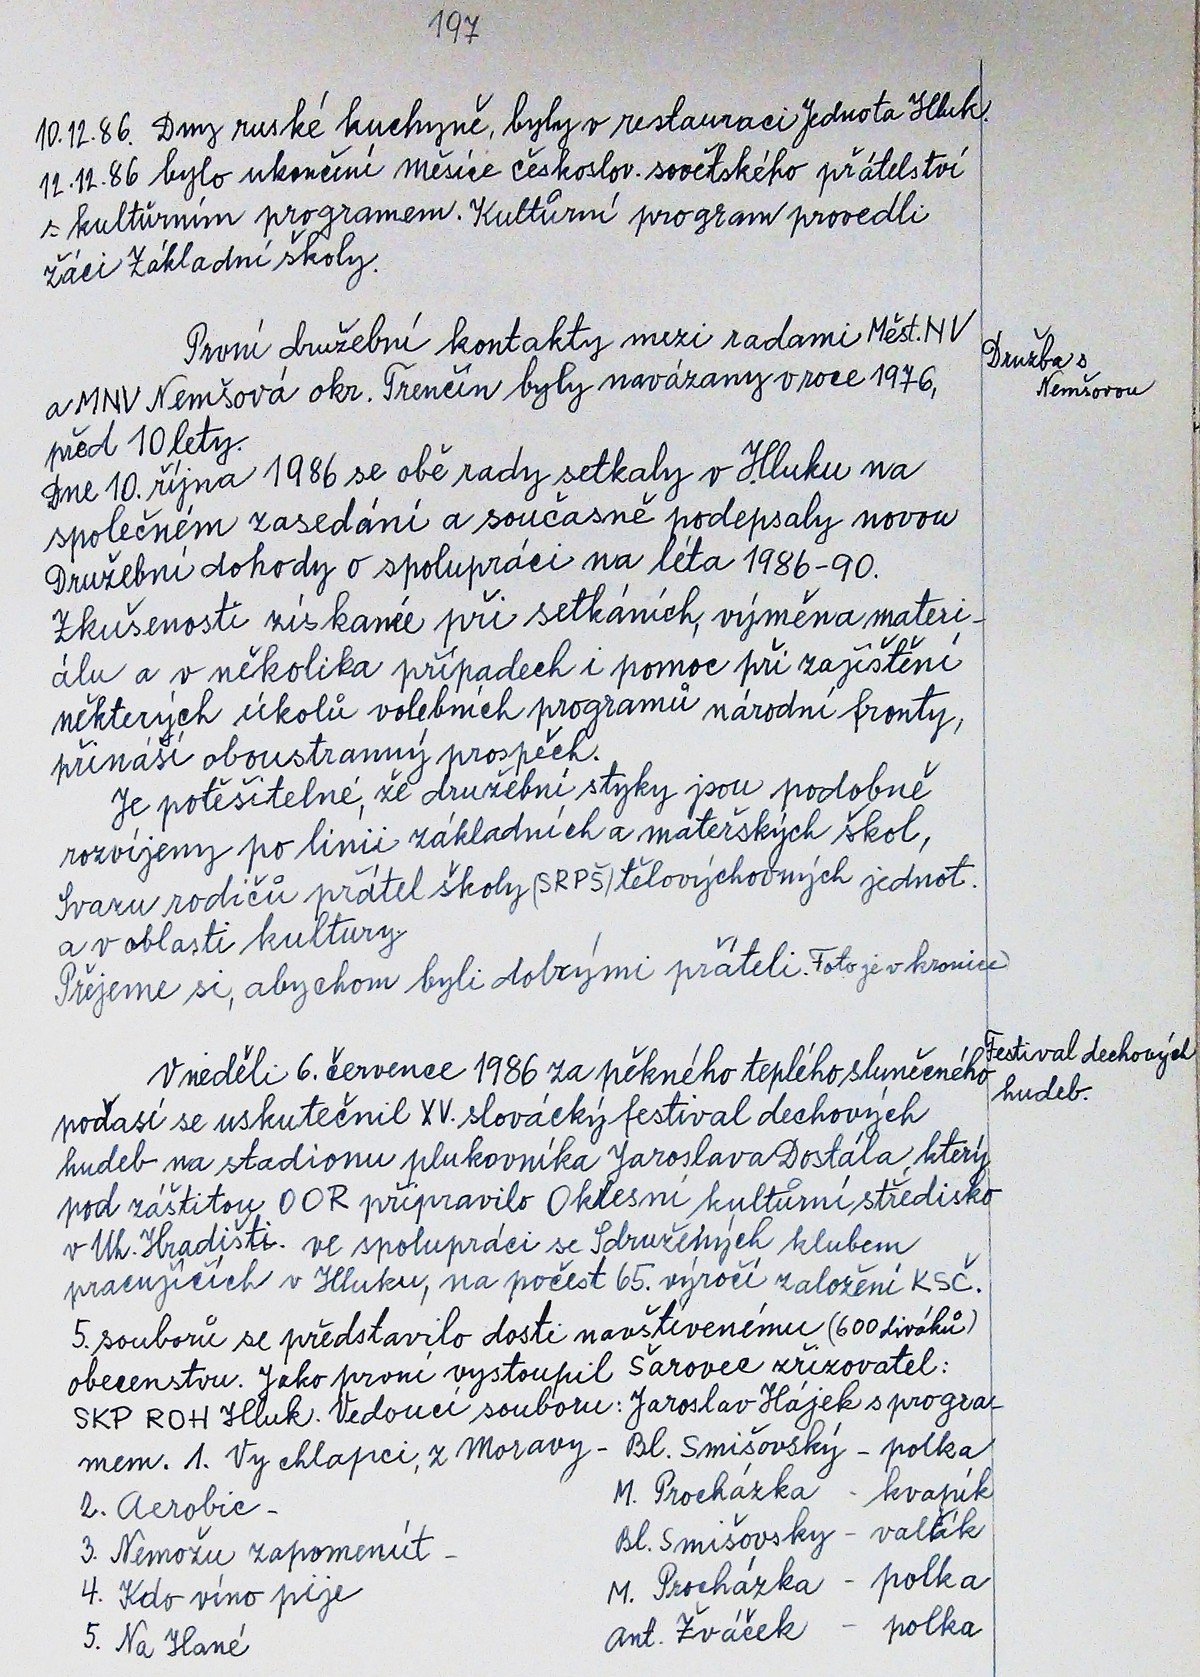 197
10.12.86. Dny ruské kuchyně, byly v restauraci Jednota Hluk.
12.12.86 bylo ukončení Měsíce českoslov. sovětského přátelství
s kultůrním programem. Kultůrní program provedli
žáci Základní školy.
První družební kontakty mezi radami Měst. NV
a MNV Nemšová okr. Trenčín byly navázany v roce 1976,
před 10 lety.
Družba s
Nemšovou
Dne 10. října 1986 se obě rady setkaly v Hluku na
společném zasedání a současně podepsaly novou
Družební dohody o spolupráci na léta 1986-90.
Zkušenosti získané při setkáních, výměna materi-
álu a v několika případech i pomoc při zajištění
některých úkolů volebních programů národní fronty,
přináší oboustranný prospěch.
Je potěšitelné, že družební styky jsou podobně
rozvíjeny po linii základních a mateřských škol,
Svazu rodičů přátel školy (SRPŠ) tělovýchovných jednot.
a v oblasti kultury.
Přejeme si, abychom byli dobrými přáteli. Foto je v kronice)
V neděli 6. července 1986 za pěkného teplého slunečného
počasí se uskutečnil XV. slovácký festival dechových
hudeb na stadionu plukovníka Jaroslava Dostála, který
pod záštitou OOR připravilo Okresní kultůrní středisko
v Uh. Hradišti. ve spolupráci se Sdruženým klubem
pracujících v Hluku, na počest 65. výročí založení KSČ.
Festival dechových
hudeb.
5. souborů se představilo dosti navštívenému (600 diváků)
obecenstvu. Jako první vystoupil Šarovec zřizovatel:
SKP ROH Hluk. Vedoucí souboru: Jaroslav Hájek s progra-
mem. 1. Vy chlapci, z Moravy - Bl. Smišovský - polka
2. Aerobic - M. Procházka - kvapík
3. Nemožu zapomenút - Bl. Smišovsky - valčák
4. Kdo víno pije M. Procházka - polka
5. Na Hané Ant. Žváček - polka